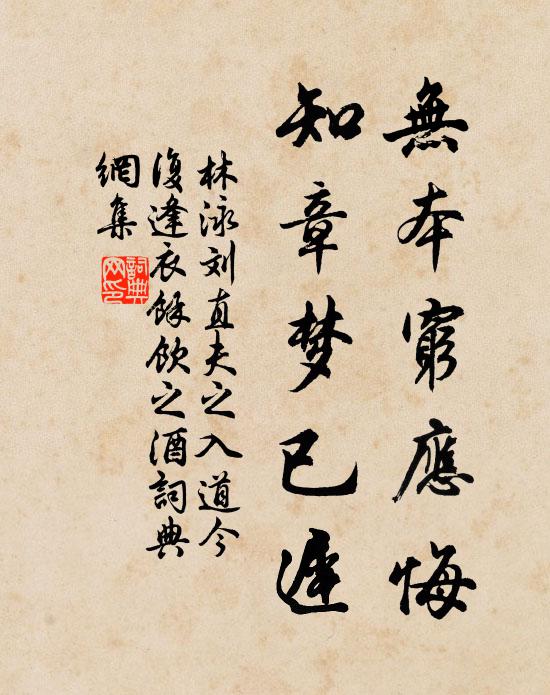 無本窮應悔
知章梦已遲
林泳刘直夫之入道今
復逢衣餘飲之酒詞典
網集
詞典
网印